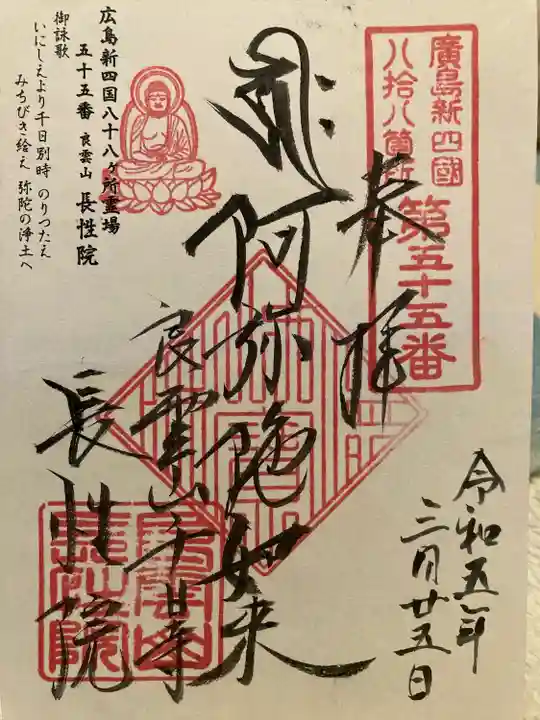 廣島新四國
八拾八箇所
第五十五番
奉拝
令和五年
三月廿五日
阿弥陀如来
良雲山
長性院
広島新四国八十八ヶ所霊場
五十五番 良雲山 長性院
御詠歌
いにしえより千日別時 のりつたえ
みちびき給え 弥陀の浄土へ